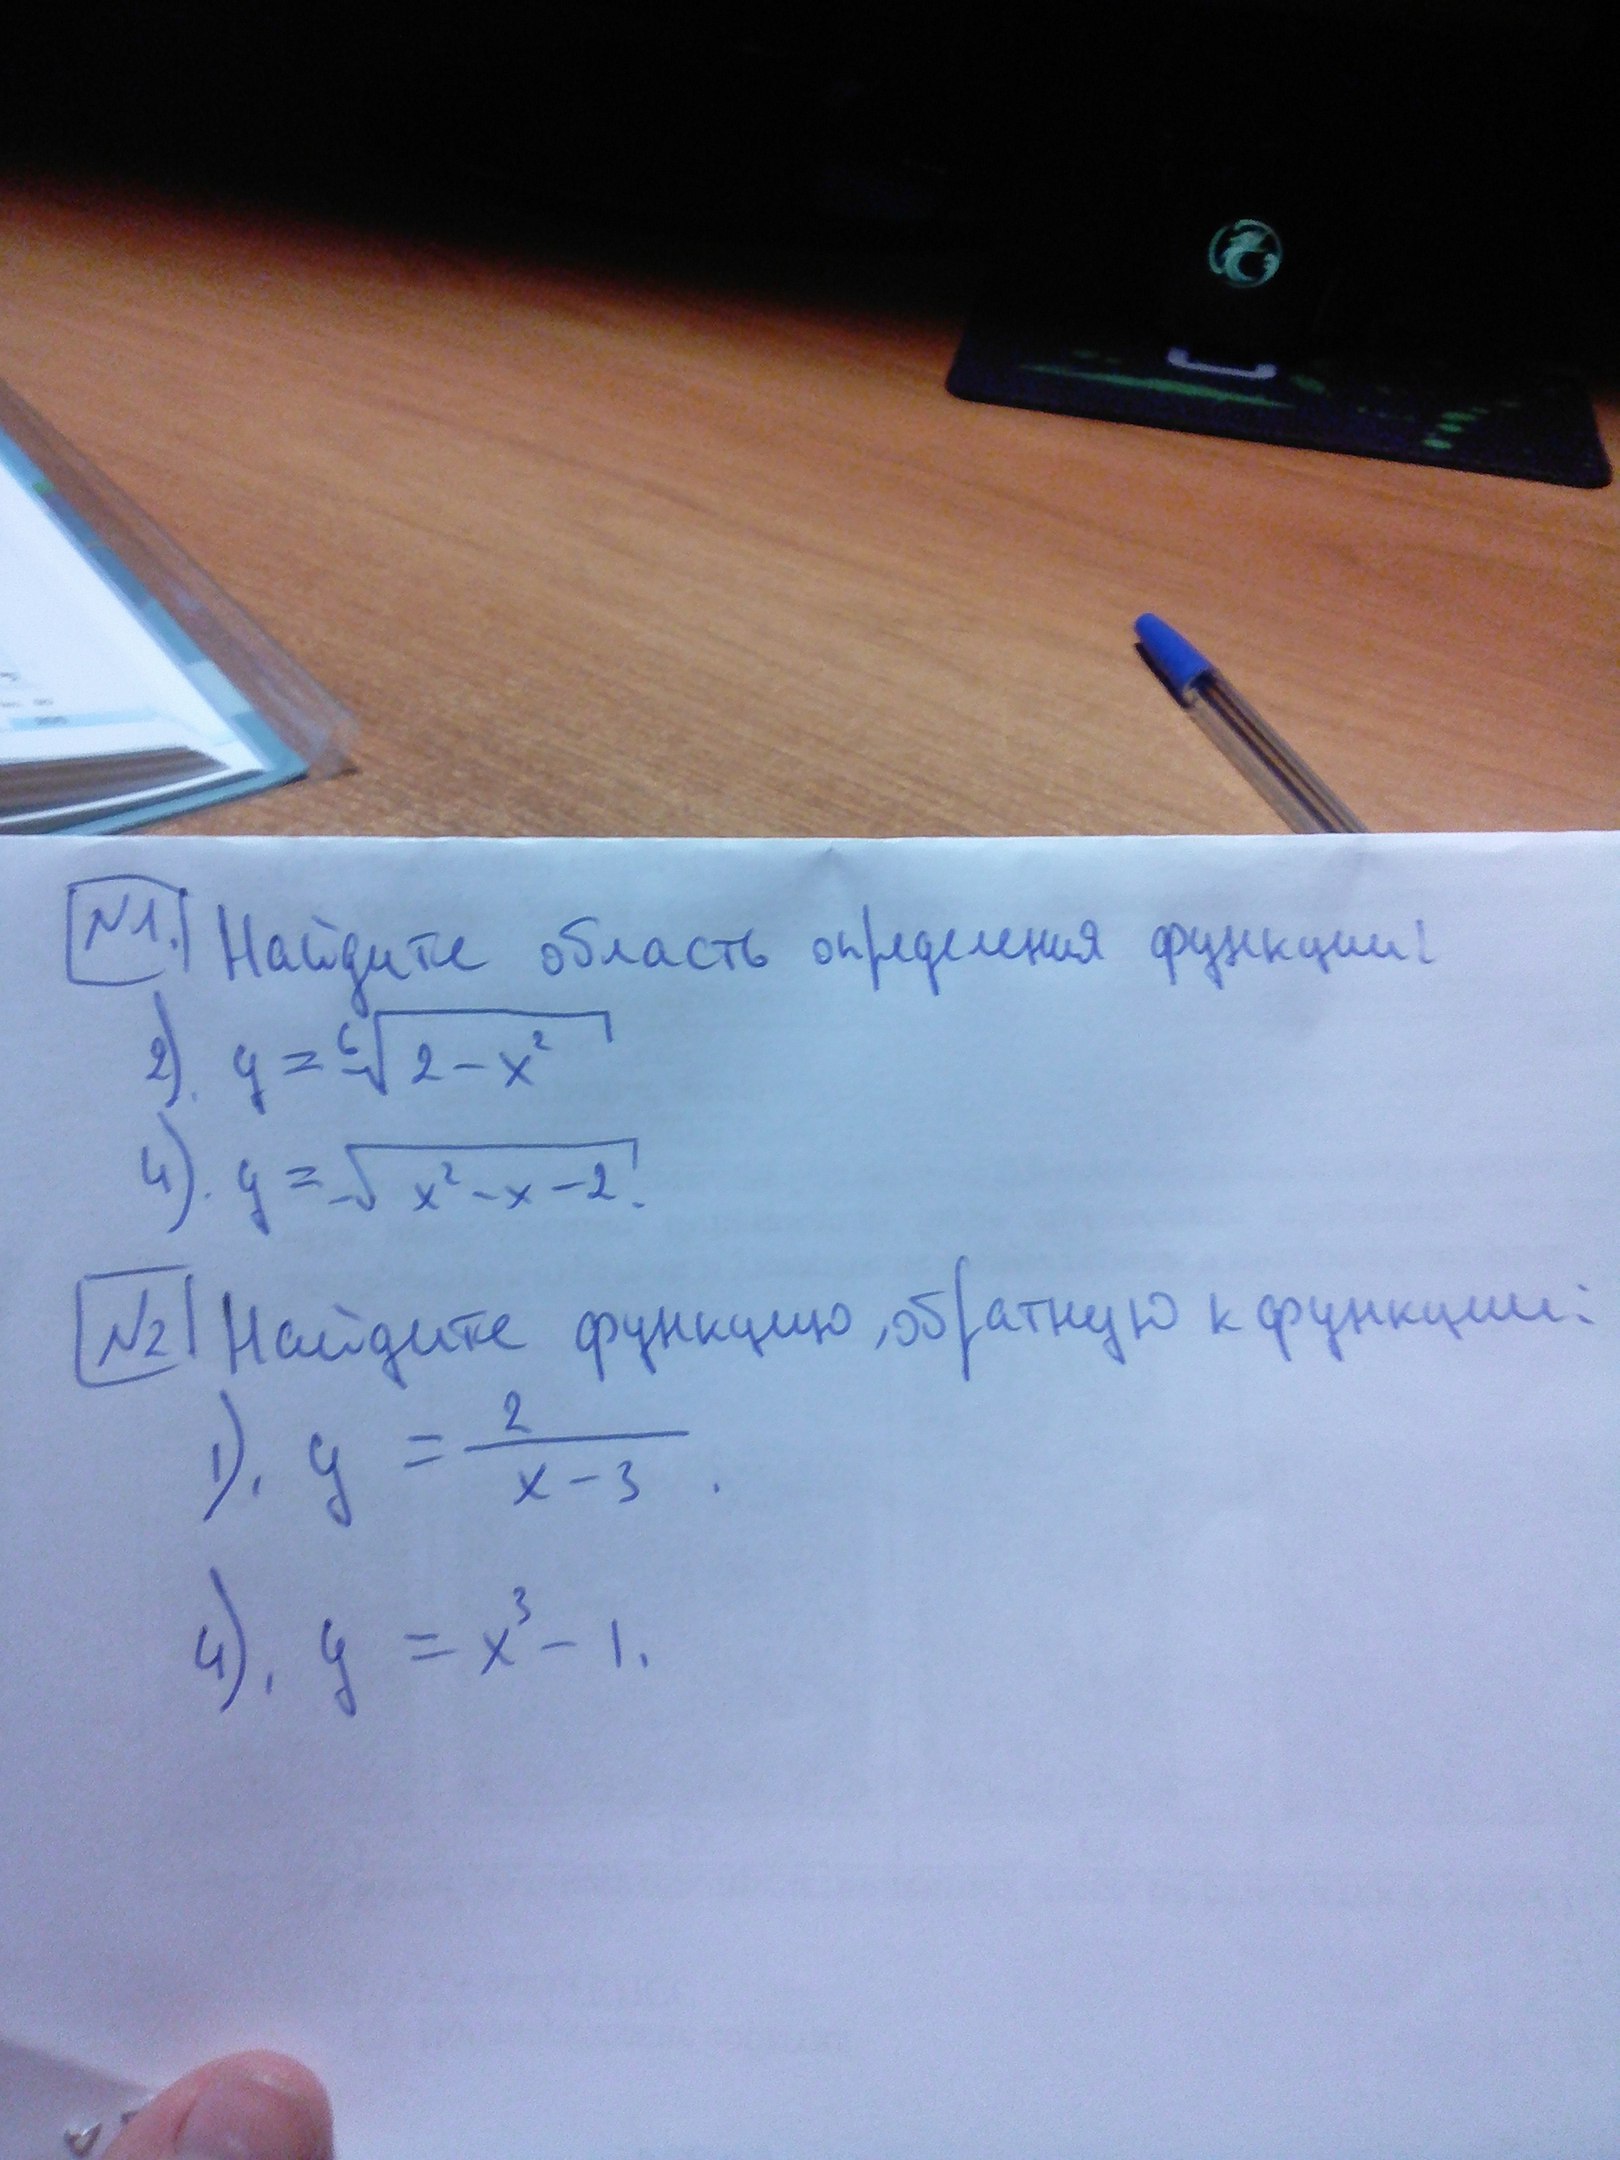 №1. Найдите область определения функции:
2). y = ⁶√(2 - x²)
4). y = √(x² - x - 2).
№2 Найдите функцию, обратную к функции:
1). y = 2/(x - 3).
4). y = x³ - 1.